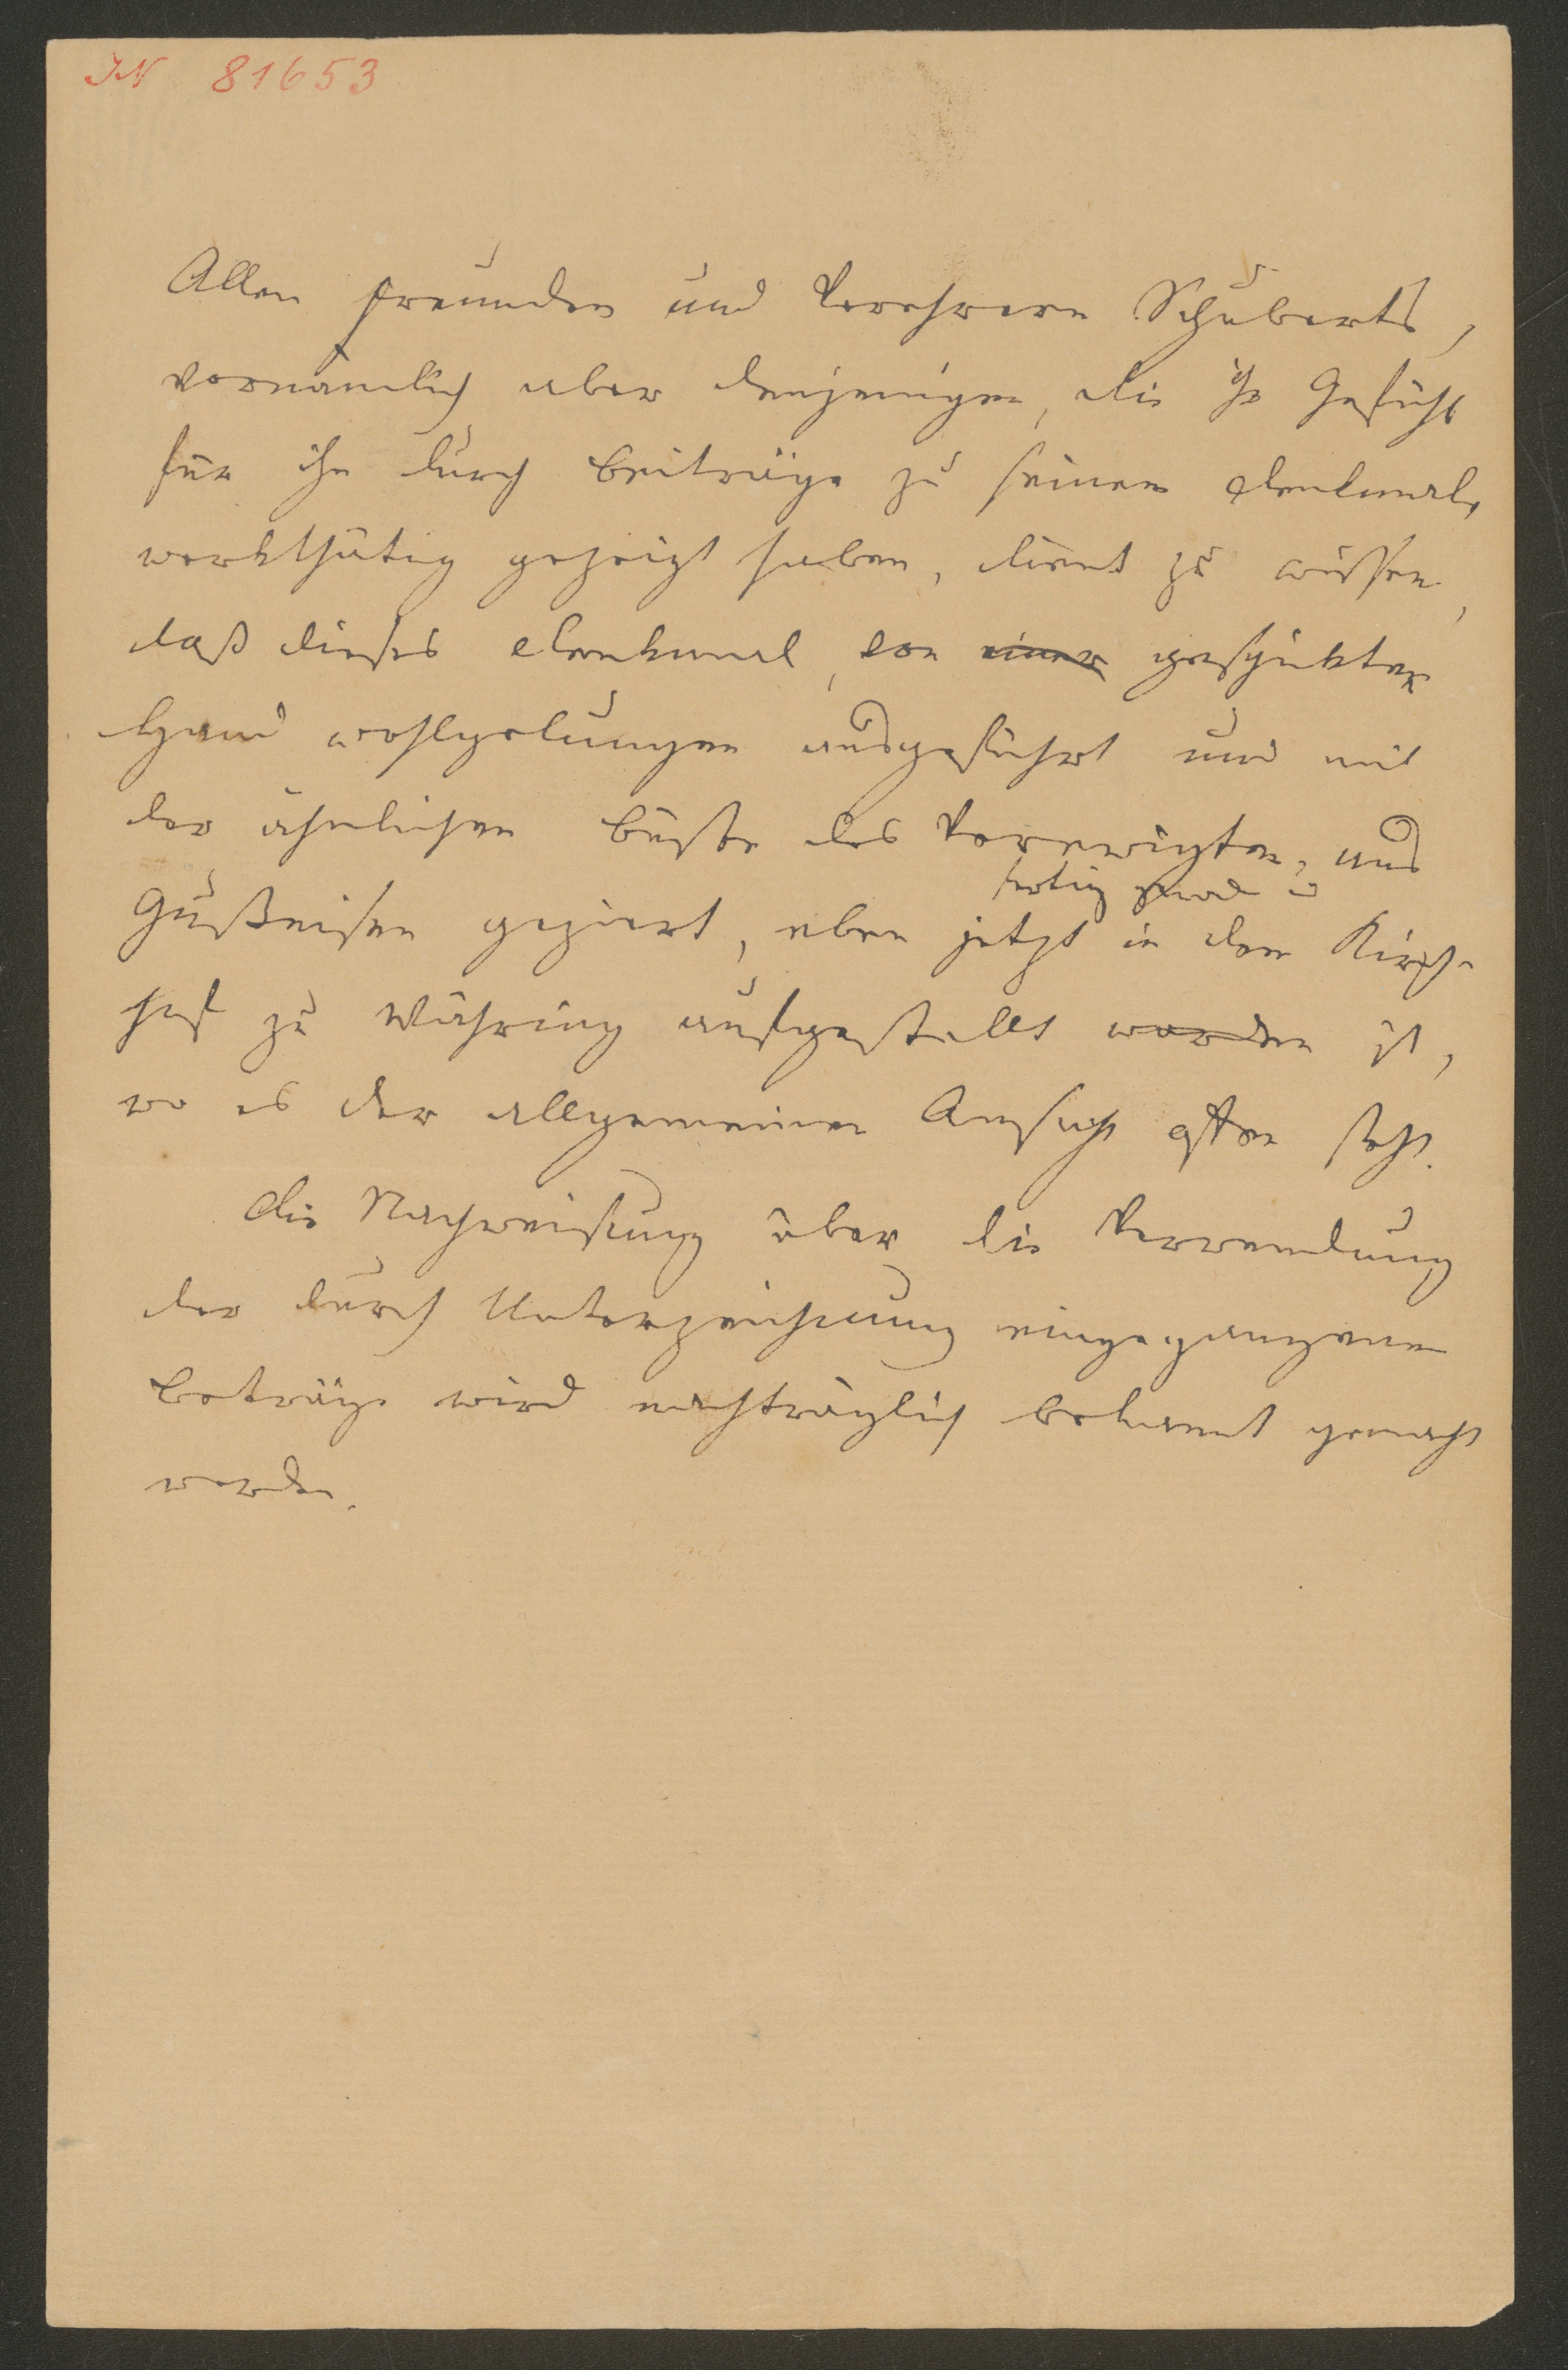 IN 81653
Allen Freunden und Verehrern Schuberts,
vornämlich aber denjenigen, die ihr Gefühl
für ihn durch Beiträge zu seinem Denkmale
werkthätig gezeigt haben, dient zu wissen,
daß dieses Denkmal, von einer geschickter
Hand wohlgelungen ausgeführt und mit
der ähnlichen Büste des Verewigten, aus
fertig u
Gußeisen geziert, eben jetzt in dem Kirch-
hof zu Währing aufgestellt worden ist,
wo es der allgemeinen Ansicht offen steht.
Die Nachweisung über die Verwendung
der durch Unterzeichnung eingegangenen
Beträge wird nachträglich bekannt gemacht
werden.